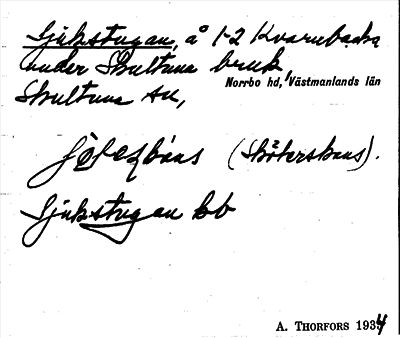 Sjukstugan, å 1-2 Kvarnbacka
under Skultuna bruk,
Norrbo hd, Västmanlands län
Skultuna sn,
(Sköterskans).
Sjukstugan bb
A. THORFORS 1934